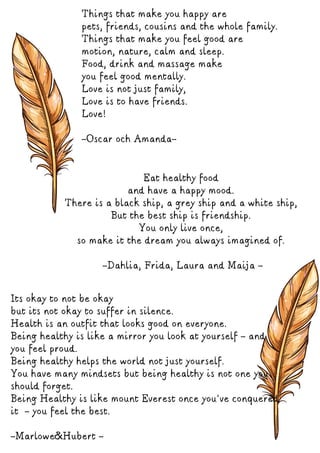 Things that make you happy are
pets, friends, cousins and the whole family.
Things that make you feel good are
motion, nature, calm and sleep.
Food, drink and massage make
you feel good mentally.
Love is not just family,
Love is to have friends.
Love!
-Oscar och Amanda-
Eat healthy food
and have a happy mood.
There is a black ship, a grey ship and a white ship,
But the best ship is friendship.
You only live once,
so make it the dream you always imagined of.
-Dahlia, Frida, Laura and Maija -
Its okay to not be okay
but its not okay to suffer in silence.
Health is an outfit that looks good on everyone.
Being healthy is like a mirror you look at yourself - and
you feel proud.
Being healthy helps the world not just yourself.
You have many mindsets but being healthy is not one you
should forget.
Being Healthy is like mount Everest once you've conquered
it - you feel the best.
-Marlowe&Hubert -